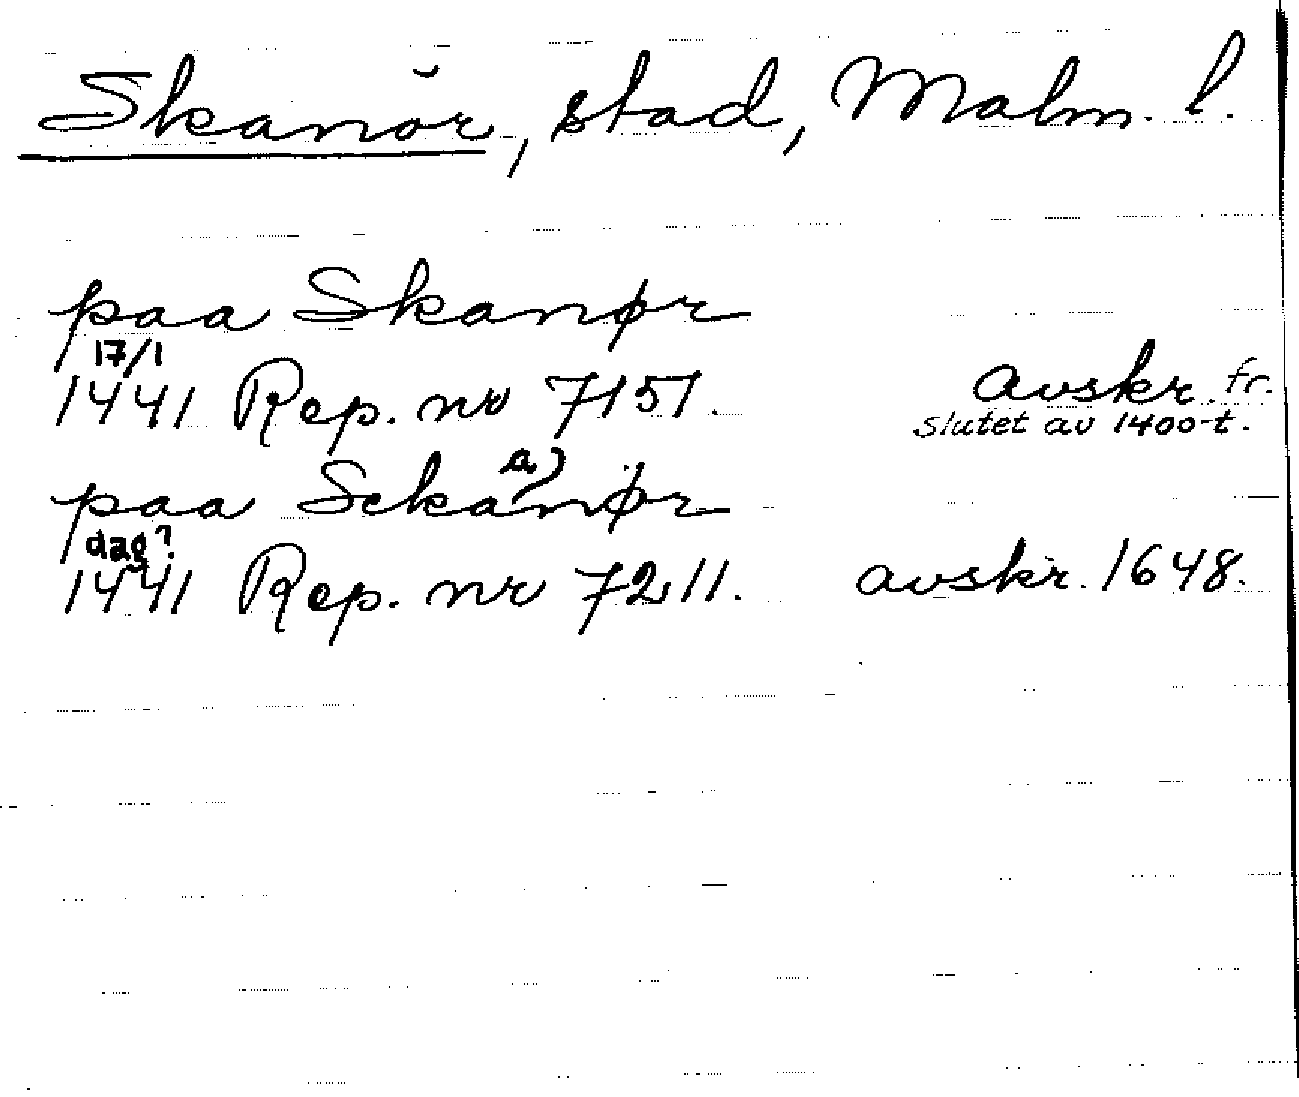 Skanör, stad, Malm. l.
paa Skanør
17/1
1441 Rep. nr 7151. avskr. fr.
slutet av 1400-t.
a)
paa Sckanør
dag?
1441 Rep. nr 7211. avskr. 1648.